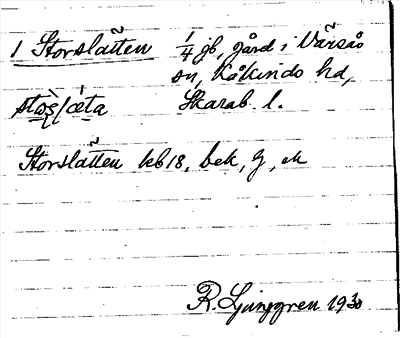 1 Storslätten 1/4 gb, gård i Värsås
sn, Kåkinds hd,
Skarab. l.
Storslätten kb 18, bek, G, ek
R. Ljunggren 1930